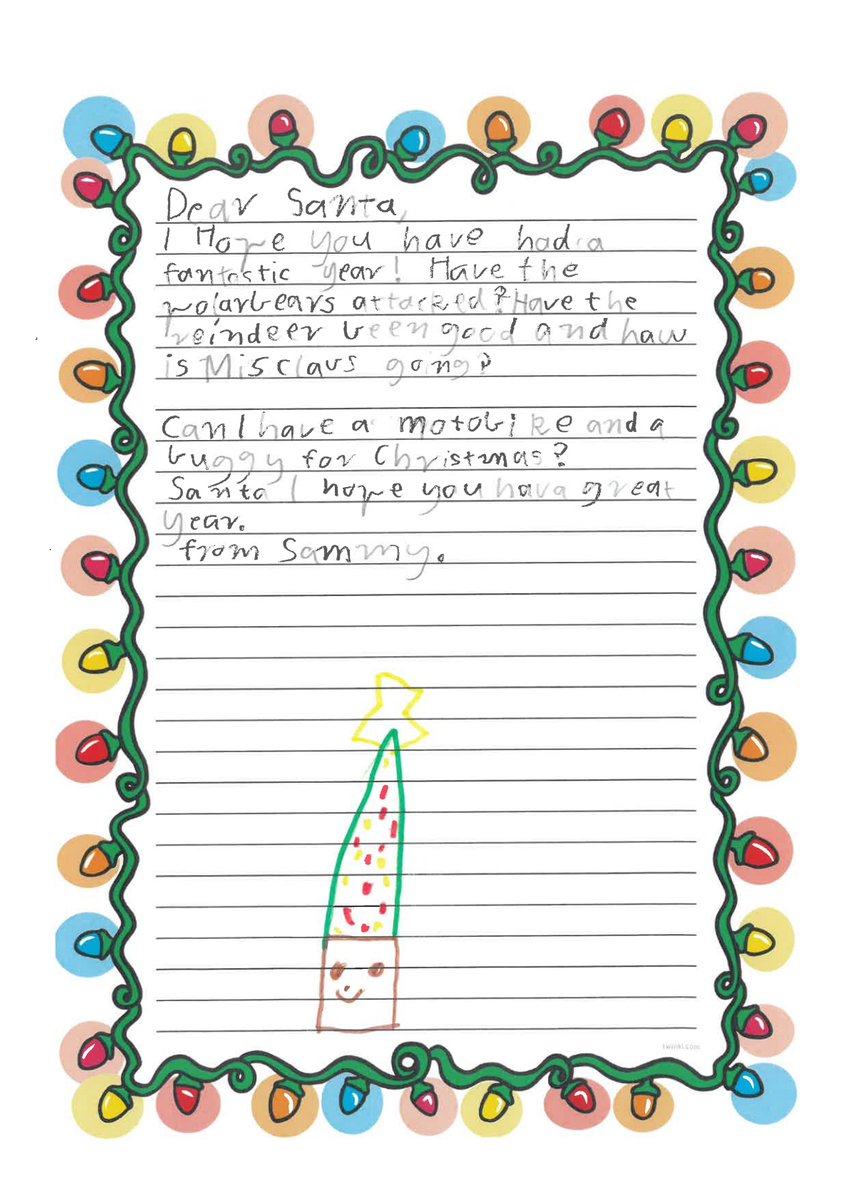 Dear Santa,
I Hope you have had a
fantastic year! Have the
polarbears attacked? Have the
reindeer been good and haw
is Mis claus going?
Can I have a motobike and a
buggy for Christmas?
Santa I hope you hava great
year.
from Sammy.